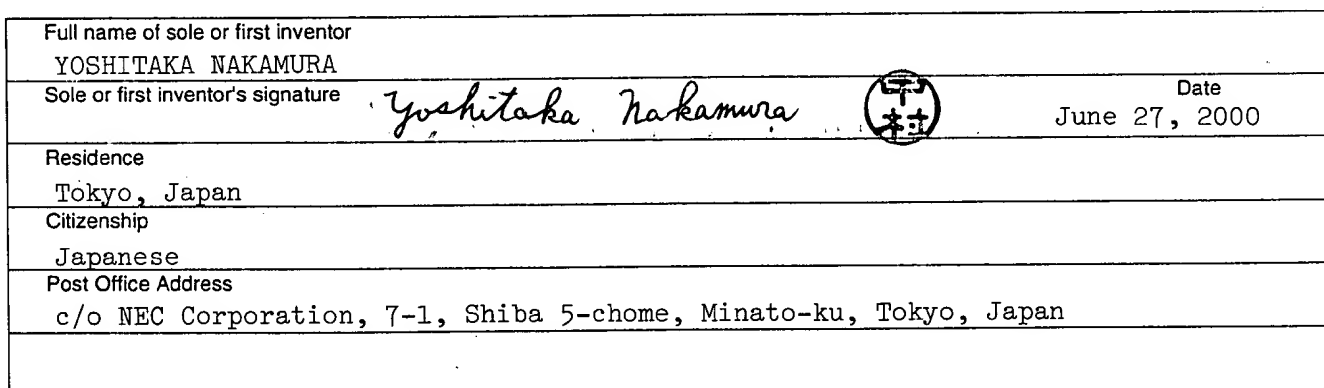 Full name of sole or first inventor
YOSHITAKA NAKAMURA
Sole or first inventor's signature Yoshitaka Nakamura
Date
June 27, 2000
Residence
Tokyo, Japan
Citizenship
Japanese
Post Office Address
c/o NEC Corporation, 7-1, Shiba 5-chome, Minato-ku, Tokyo, Japan